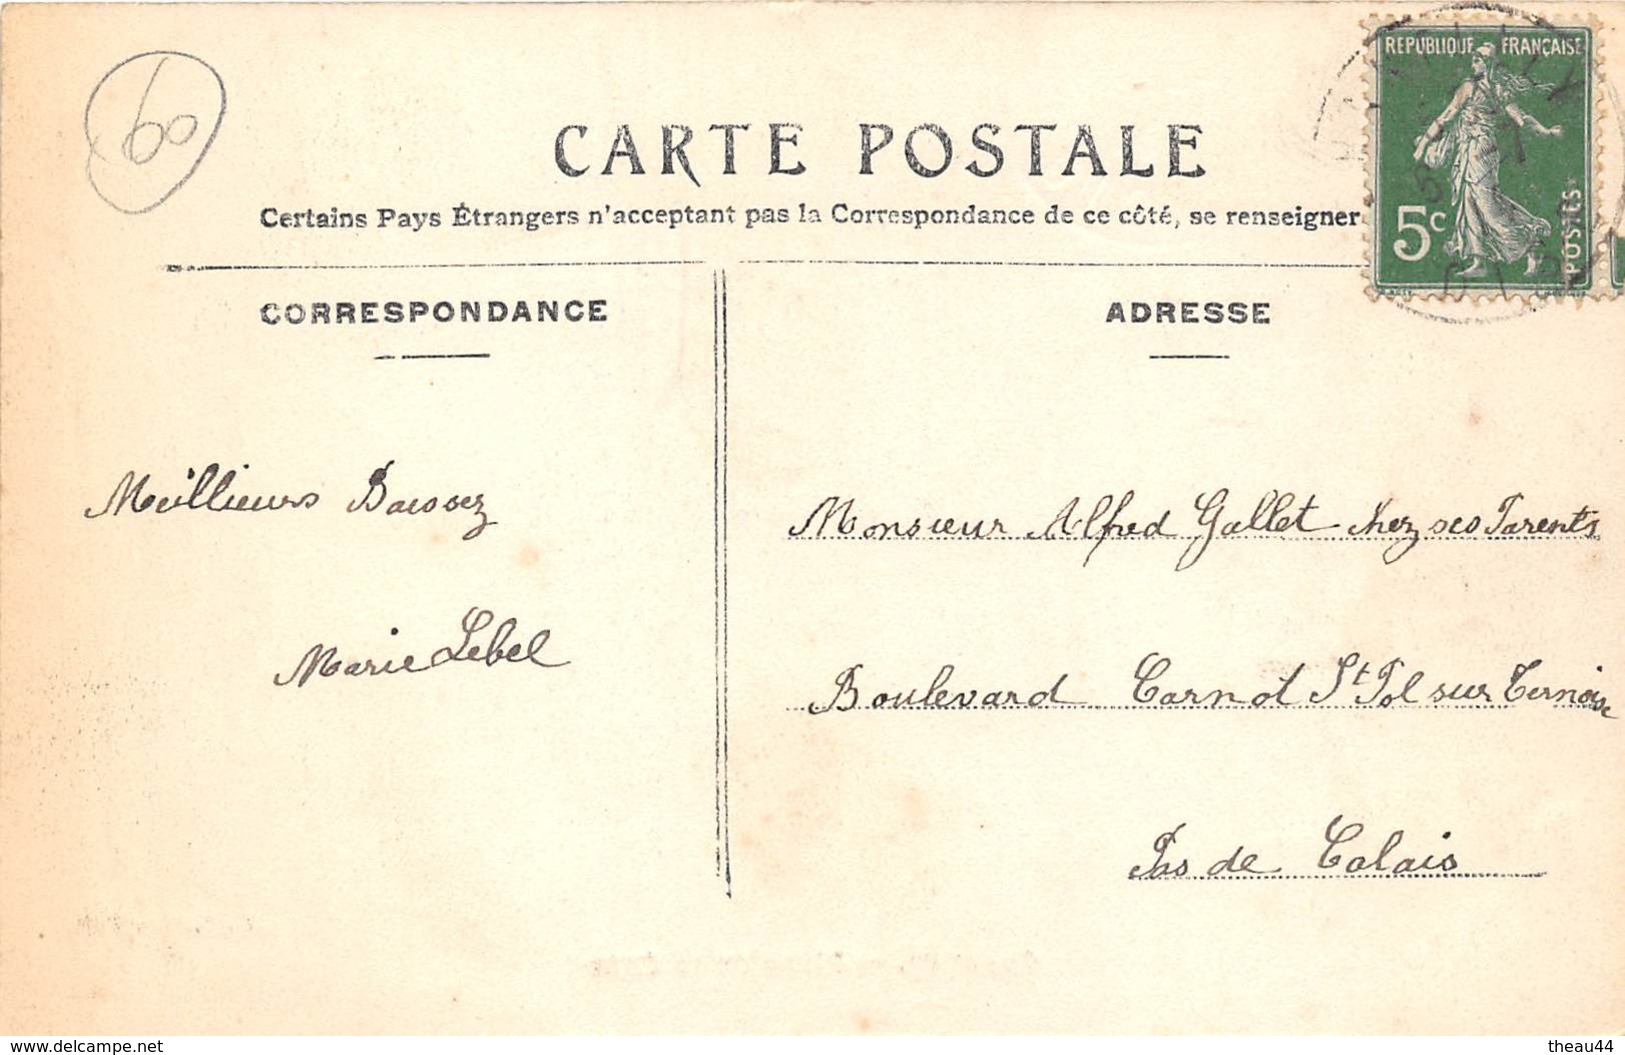 60
CARTE POSTALE
Certains Pays Étrangers n'acceptant pas la Correspondance de ce côté, se renseigner
REPUBLIQUE FRANÇAISE
5c
POSTES
CORRESPONDANCE
ADRESSE
Meillieurs Baisoez
Marie Lebel
Monsieur Alfred Gallet chez ses Parents
Boulevard Carnot St Pol sur Ternoise
Pas de Calais
www.delcampe.net
theau44